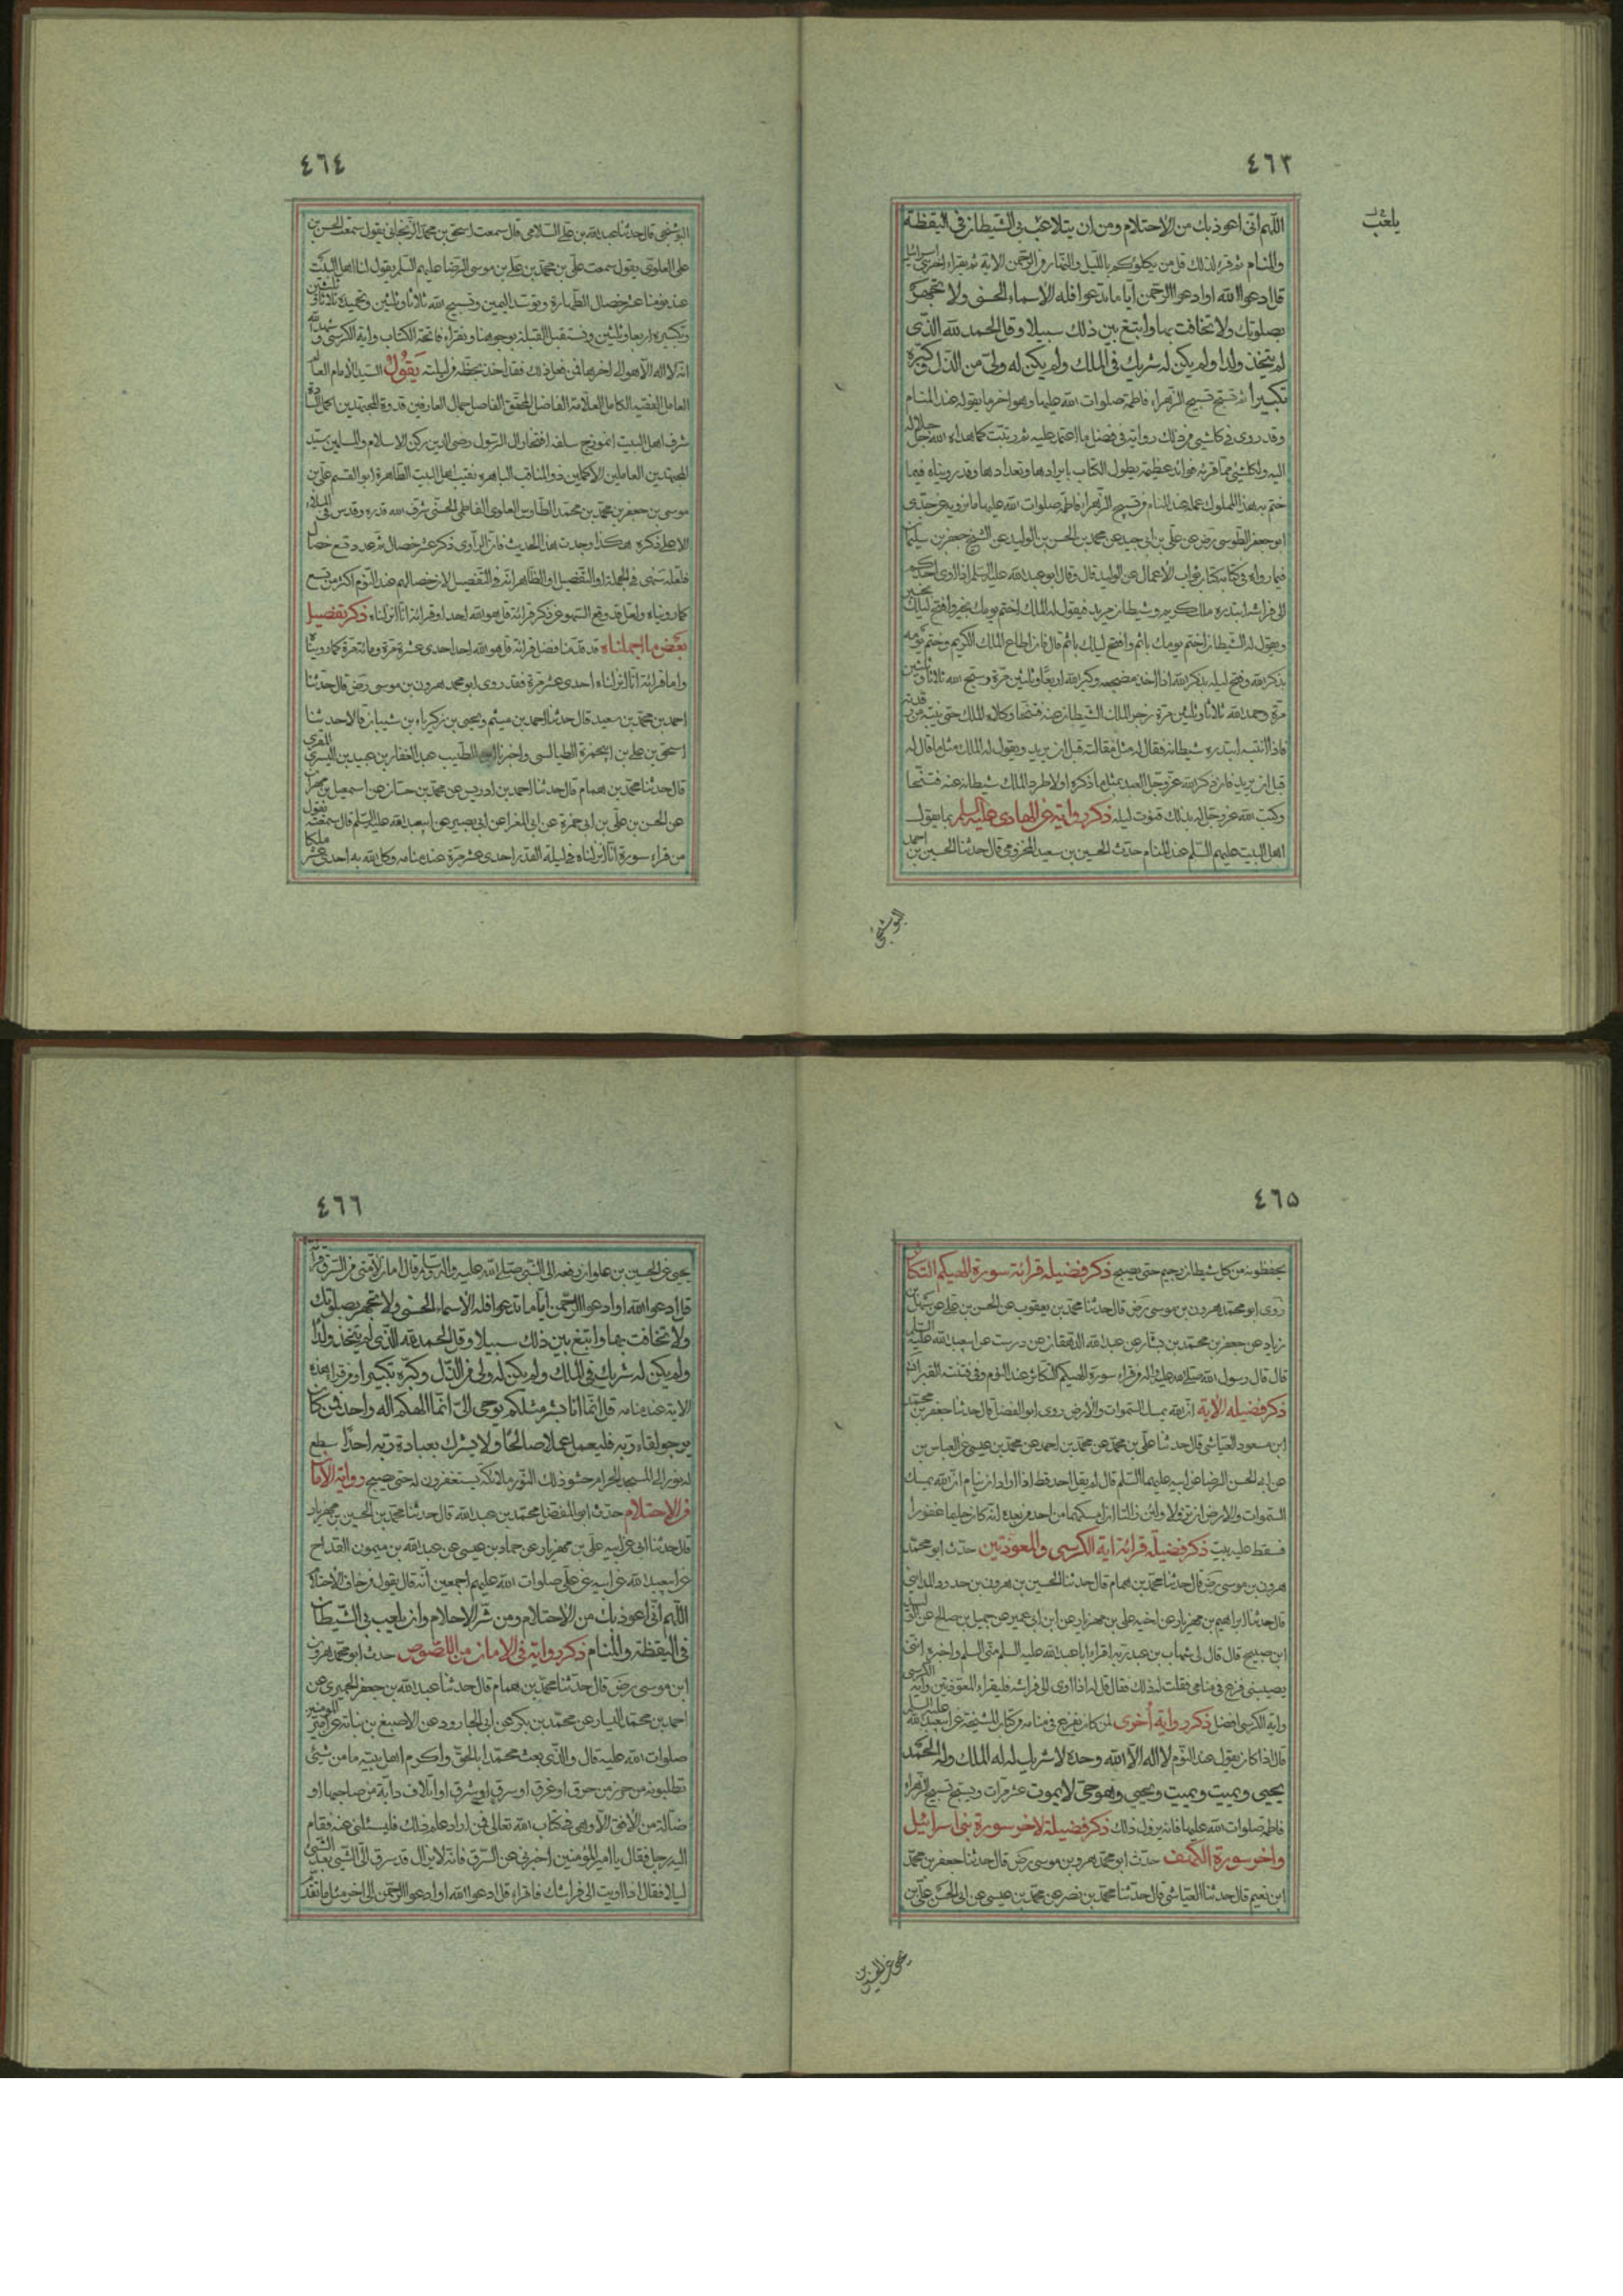 ٤٦٣
يلعب
اللهم انى اعوذ بك من الاحتلام ومن ان يتلاعب بى الشيطان فى اليقظة
والمنام ثم قرء لذلك قل من يكلؤكم بالليل والنهار من الرحمن الاية ثم يقراء اخر بنى اسرائيل
قل ادعوا الله او ادعوا الرحمن ايا ما تدعوا فله الاسماء الحسنى ولا تجهر
بصلوتك ولا تخافت بها وابتغ بين ذلك سبيلا وقل الحمد لله الذى
لم يتخذ ولدا ولم يكن له شريك فى الملك ولم يكن له ولى من الذل وكبره
تكبيرا ثم تسبح تسبيح الزهراء فاطمة صلوات الله عليها وهو اخر ما يقوله عند المنام
وقد روى فى كل شئ من ذلك رواية فى فضل ما اعتمد عليه ثم ريتبت كما هداه الله جل جلاله
اليه ولكل شئ مما قرئه فوائد عظيمة يطول الكتاب بايرادها وتعدادها وقد رويناه فيما
ختم به هذا المملوك عمله عند المنام من تسبيح الزهراء فاطمة صلوات الله عليها ما نرويه عن جدى
ابو جعفر الطوسى رض عن على بن ابى جيد عن محمد بن الحسن بن الوليد عن الشيخ جعفر بن سليمان
فيما رواه فى كتابه كتاب ثواب الاعمال عن الوليد قال وقال ابو عبد الله عليه السلم اذا اوى احدكم
الى فراشه ابتدره ملك كريم وشيطان مريد فيقول له الملك اختم يومك بخير وافتح ليلك بخير
ويقول له الشيطان اختم يومك باثم وافتح ليلك باثم قال فان اطاع الملك الكريم وختم يومه
بذكر الله وفتح ليله بذكر الله اذا اخذ مضجعه وكبر الله اربعا وثلثين مرة وسبح الله ثلاثا وثلثين
مرة وحمد الله ثلاثا وثلثين مرة زجر الملك الشيطان عنه فتنحا وكلاه الملك حتى ينتبه من رقدته
فاذا انتبه ابتدره شيطانه فقال له مثل مقالته قبل ان يرقد ويقول له الملك مثل ما قال له
قبل ان يرقد فان ذكر الله عز وجل العبد بمثل ما ذكره اولا طرد الملك شيطانه عنه فتنحا
وكتب الله عز وجل له بذلك قنوت ليله ذكر رواية عن الهادى عليه السلم بما يقول
اهل البيت عليهم السلم عند المنام حدث الحسين بن سعيد المخزومى قال حدثنا الحسين بن احمد
البوشنجى
٤٦٤
البوشنجى قال حدثنا عبد الله بن على السلامى قال سمعت اسحق بن محمد الزنجانى يقول سمعت الحسن بن
على العلوى يقول سمعت على بن محمد بن على بن موسى الرضا عليهم السلم يقول لنا اهل البيت
عند نومنا عشر خصال الطهارة وتوسد اليمين وتسبيح الله ثلاثا وثلثين وتحميده ثلاثا وثلثين
وتكبيره اربعا وثلثين ونستقبل القبلة بوجوهنا ونقراء فاتحة الكتاب واية الكرسى وشهد الله
انه لا اله الا هو الى اخرها فمن فعل ذلك فقد اخذ بحظه من ليلته يقول السيد الامام العالم
العامل الفقيه الكامل العلامة الفاضل المحقق الفاصل جمال العارفين قدوة المجتهدين اكمل السادة
شرف اهل البيت انموذج سلفه افتخار ال الرسول رضى الدين ركن الاسلام والمسلمين سيد
المجتهدين العاملين الاكملين ذو المناقب الباهره نقيب اهل البيت الطاهرة ابو القسم على بن
موسى بن جعفر بن محمد بن محمد الطاوس العلوى الفاطمى الحسنى شرف الله قدره وقدس فى الملاء
الاعلى ذكره هكذا وجدت هذا الحديث فان الراوى ذكر عشر خصال ثم عدد تسع خصال
فلعله سهى فى الجملة او التفصيل او الظاهر انه فى التفصيل لان خصالهم عند النوم اكثر من تسع
كما رويناه ولعل قد وقع السهو عن ذكر قرائة قل هو الله احد او قرائة انا انزلناه ذكر تفصيل
بعض ما اجملناه قد قدمنا فضل قرائة قل هو الله احد احدى عشرة مرة ومائة مرة كما روينا
واما قرائة انا انزلناه احدى عشر مرة فقد روى ابو محمد هرون بن موسى رض قال حدثنا
احمد بن محمد بن سعيد قال حدثنا احمد بن ميثم ويحيى بن زكرياء بن شيبان قالا حدثنا
اسحق بن على بن ابيحمزة الطيالسى واخبرنا الطيب عبد الغفار بن عبيد بن السرى المقرى
قال حدثنا محمد بن همام قال حدثنا احمد بن ادريس عن محمد بن حسان عن اسمعيل بن مهران
عن الحسن بن على بن ابى حمزة عن ابى المغرا عن ابى بصير عن ابيعبد الله عليه السلم قال سمعته يقول
من قراء سورة انا انزلناه فى ليلة القدر احدى عشر مرة عند منامه وكل الله به احدى عشر ملكا
٤٦٥
يحفظونه من كل شيطان رجيم حتى يصبح ذكر فضيلة قرائة سورة الهيكم التكاثر
روى ابو محمد هرون بن موسى رض قال حدثنا محمد بن يعقوب عن الحسن بن على عن سهل بن
زياد عن جعفر بن محمد بن بشار عن عبد الله الدهقان عن درست عن ابيعبد الله عليه السلم
قال قال رسول الله صلى الله عليه واله من قراء سورة الهيكم التكاثر عند النوم وقى فتنة القبر
ذكر فضيلة الاية ان الله يمسك السموات والارض روى ابو الفضل قال حدثنا جعفر بن محمد
ابن مسعود العياشى قال حدثنا على بن محمد عن محمد بن احمد عن محمد بن عيسى عن العباس بن
عن ابى الحسن الرضا عن ابيه عليهما السلم قال لم يقل احد قط اذا اراد ان ينام ان الله يمسك
السموات والارض ان تزولا ولئن زالتا ان امسكهما من احد من بعده انه كان حليما غفورا
فسقط عليه بيت ذكر فضيلة قرائة اية الكرسى والمعوذتين حدث ابو محمد
هرون بن موسى رض قال حدثنا محمد بن همام قال حدثنا الحسين بن هرون بن حدرود المداينى
قال حدثنا ابراهيم بن مهزيار عن اخيه على بن مهزيار عن ابن ابى عمير عن جميل بن صالح عن
ابن صبيح قال قال لى شهاب بن عبد ربه اقراء ابا عبد الله عليه السلم منى السلم واخبره اننى
يصيبنى فزع فى منامى فقلت له ذلك فقال قل له اذا اوى الى فراشه فليقراء المعوذتين واية الكرسى
واية الكرسى افضل ذكر رواية أخرى لمن كان يفزع فى منامه من كتاب المشيخة عن ابيعبد الله عليه السلم
قال اذا كان يقول عند النوم لا اله الا الله وحده لا شريك له له الملك وله الحمد
يحيى ويميت ويميت ويحيى وهو حى لا يموت عشر مرات ويسبح تسبيح الزهراء
فاطمة صلوات الله عليها فانه يزول ذلك ذكر فضيلة لاخر سورة بنى اسرائيل
واخر سورة الكهف حدث ابو محمد هرون بن موسى رض قال حدثنا جعفر بن محمد
ابن نعيم قال حدثنا العياشى قال حدثنا محمد بن نصر عن محمد بن عيسى عن ابى الحسن على بن
يحيى عن الحسين بن
٤٦٦
يحيى عن الحسين بن علوان رفعه الى النبى صلى الله عليه واله وسلم قال امان لامتى من السرق قرائة
قل ادعوا الله او ادعوا الرحمن ايا ما تدعوا فله الاسماء الحسنى ولا تجهر بصلوتك
ولا تخافت بها وابتغ بين ذلك سبيلا وقل الحمد لله الذى لم يتخذ ولدا
ولم يكن له شريك فى الملك ولم يكن له ولى من الذل وكبره تكبيرا ومن قرا هذه
الاية عند منامه قل انما انا بشر مثلكم يوحى الى انما الهكم اله واحد فمن كان
يرجو لقاء ربه فليعمل عملا صالحا ولا يشرك بعبادة ربه احدا سطع
له نور الى المسجد الحرام حشو ذلك النور ملائكة يستغفرون له حتى يصبح رواية الامان
من الاحتلام حدث ابو المفضل محمد بن عبد الله قال حدثنا محمد بن الحسين بن مهزيار
قال حدثنا ابى عن ابيه على بن مهزيار عن حماد بن عيسى عن عبد الله بن ميمون القداح
عن ابيعبد الله عن ابيه عن على صلوات الله عليهم اجمعين انه قال يقول من خاف الاحتلام
اللهم انى اعوذ بك من الاحتلام ومن شر الاحلام وان يلعب بى الشيطان
فى اليقظة والمنام ذكر رواية فى الامان من اللصوص حدث ابو محمد هرون
ابن موسى رض قال حدثنا محمد بن همام قال حدثنا عبد الله بن جعفر الحميرى عن
احمد بن محمد السيار عن محمد بن بكر عن ابى الجارود عن الاصبغ بن نباتة عن امير المؤمنين
صلوات الله عليه قال والذى بعث محمدا بالحق واكرم اهل بيته ما من شئ
تطلبونه من حرز من حرق او غرق او سرق او شرق او اتلاف دابة من صاحبها او
ضالة من الافق الا وهى فى كتاب الله تعالى فمن اراد علم ذلك فليسئلنى عنه فقام
اليه رجل فقال يا امير المؤمنين اخبرنى عن السرق فانه لا يزال قد سرق الى الشئ بعد الشئ
ليلا فقال اذا اويت الى فراشك فاقراء قل ادعوا الله او ادعوا الرحمن الى اخر مثل ما تقدم